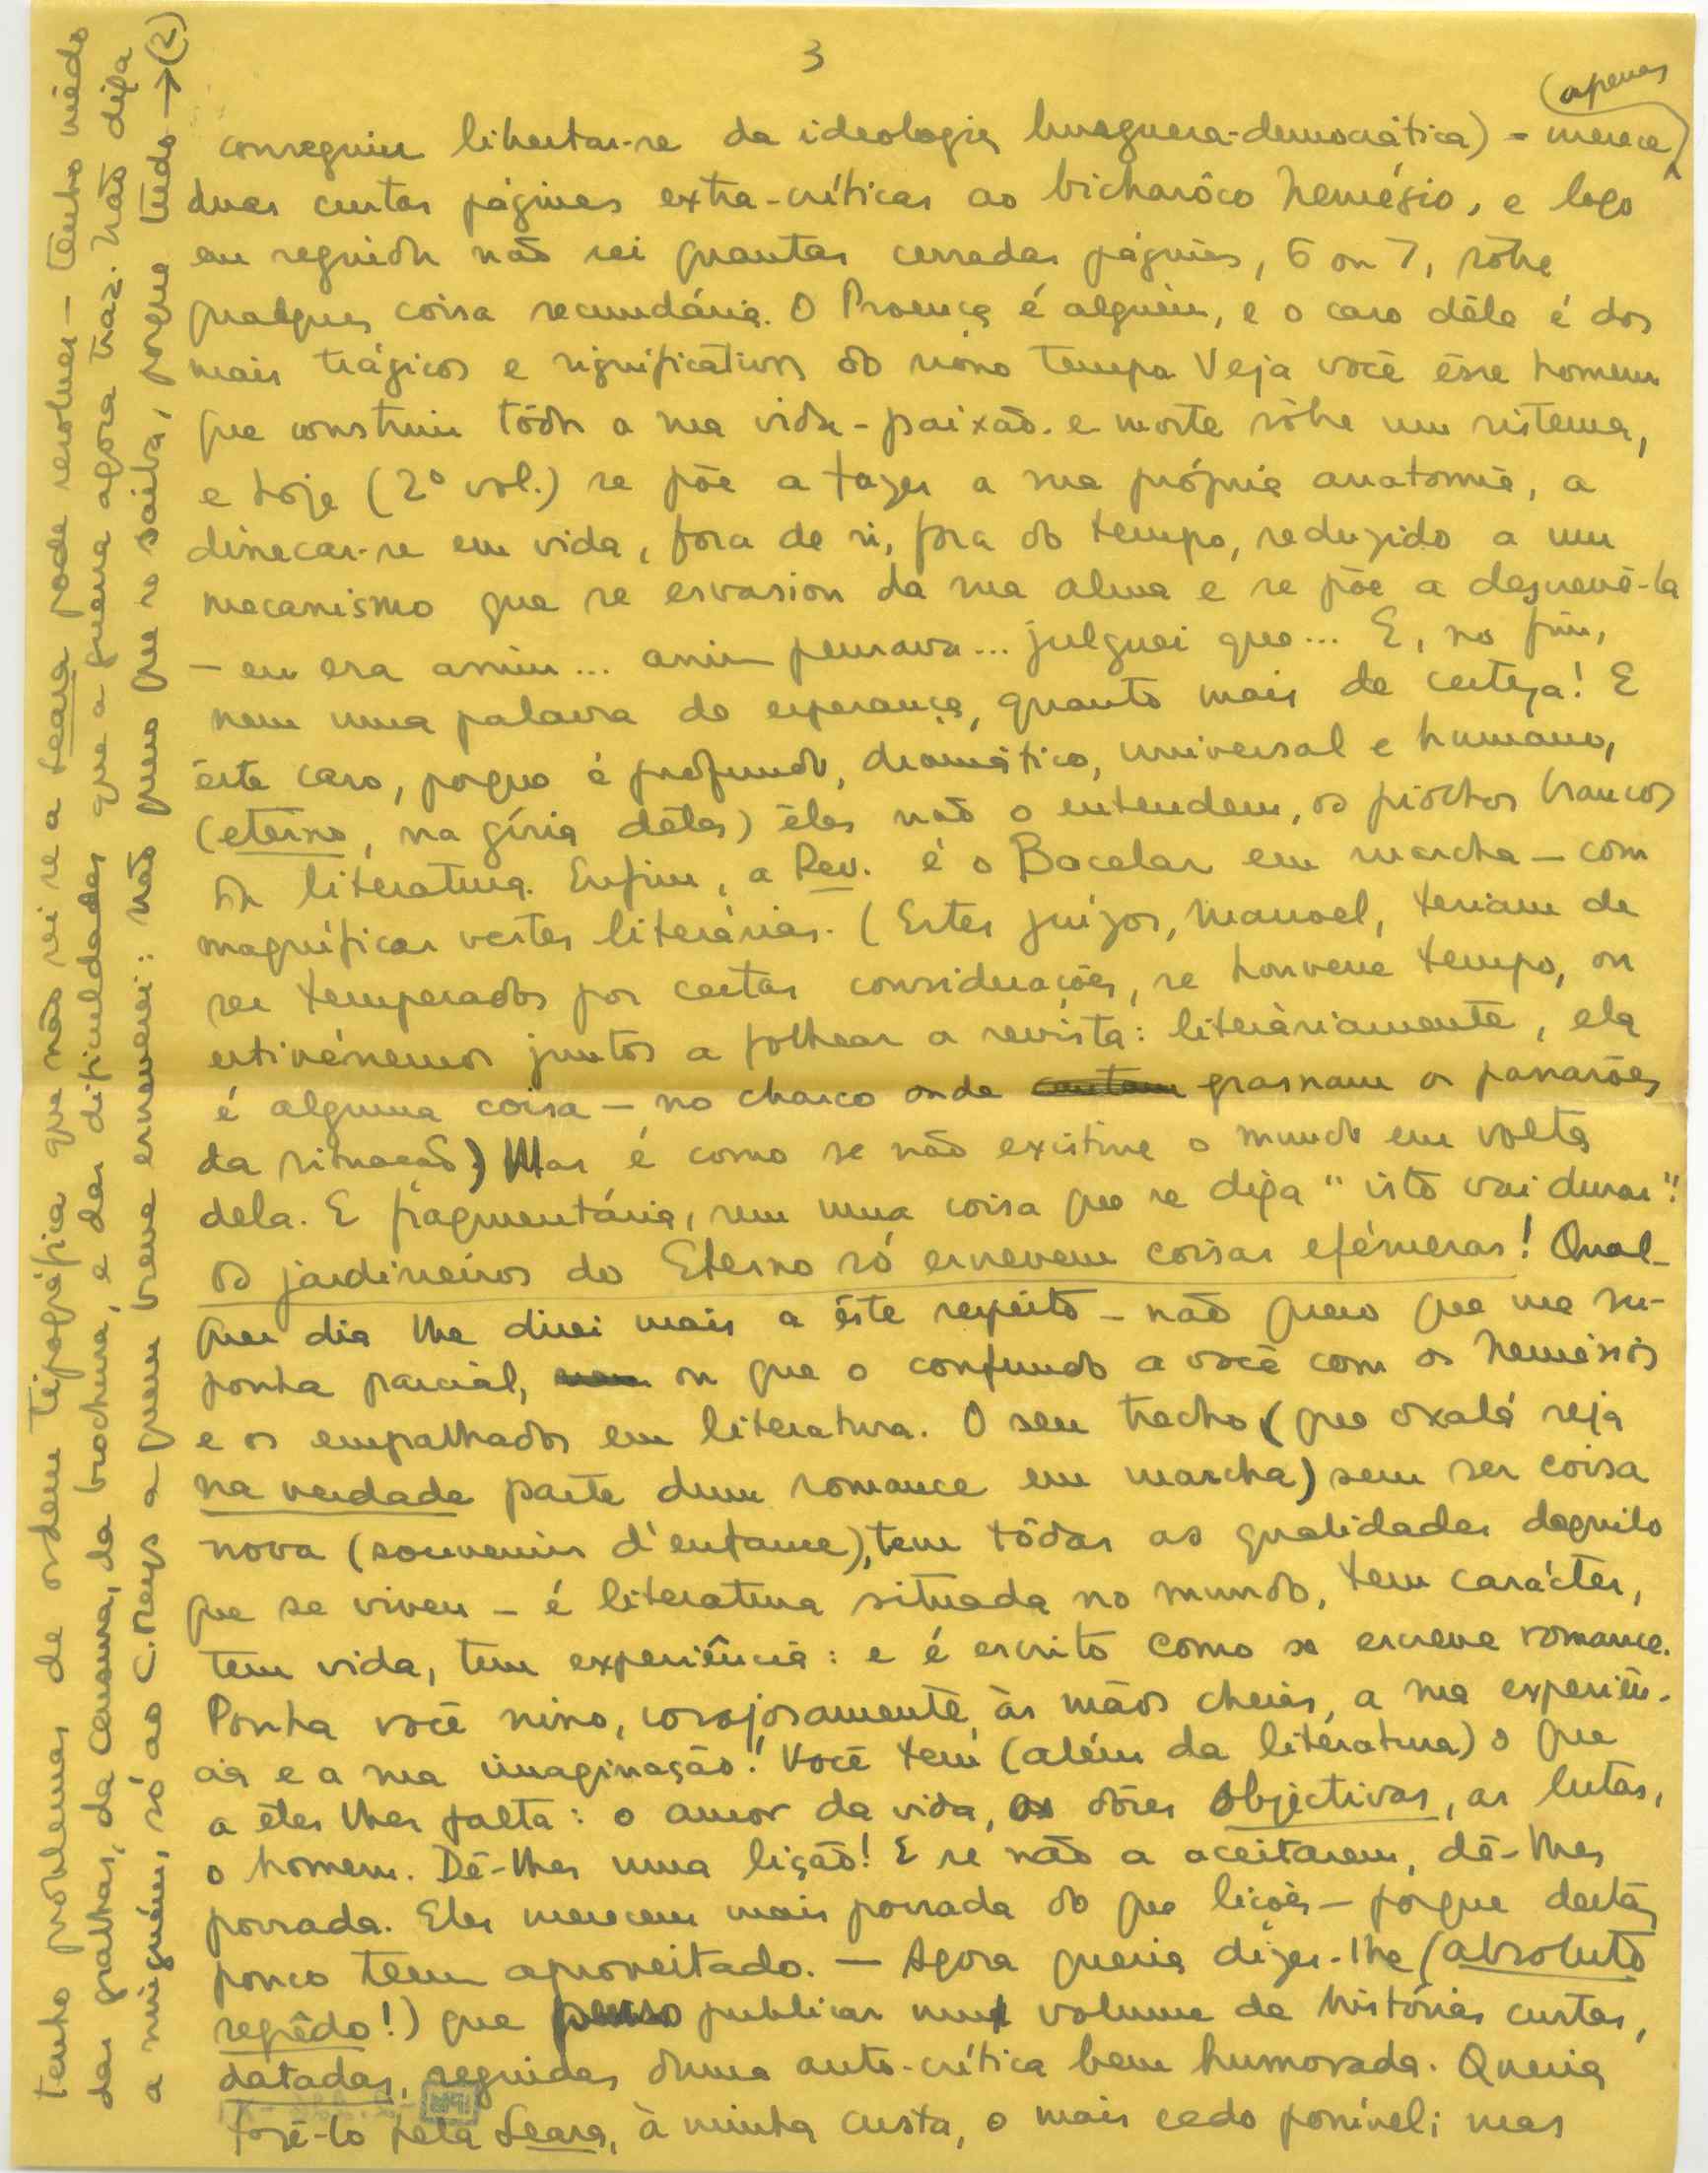 3
conseguiu libertar-se da ideologia burguesa-democrática) - merece (apenas)
duas curtas páginas extra-críticas ao bicharôco Nemésio, e logo
em seguida não sei quantas cerradas páginas, 6 ou 7, sôbre
qualquer coisa secundária. O Proença é alguém, e o caso dêle é dos
mais trágicos e significativos do nosso tempo. Veja você êsse homem
que construiu tôda a sua vida - paixão e morte sôbre um sistema,
e hoje (2º vol.) se põe a fazer a sua própria anatomia, a
dissecar-se em vida, fora de si, fora do tempo, reduzido a um
mecanismo que se esvasiou da sua alma e se põe a descrevê-la
- eu era assim... assim pensava... julguei que... E, no fim,
nem uma palavra de esperança, quanto mais de certeza! E
êste caso, porque é profundo, dramático, universal e humano,
(eterno, na gíria dêles) êles não o entendem, os piôchos brancos
da literatura. Enfim, a Rev. é o Bacelar em marcha - com
magníficas vestes literárias. (Estes juízos, Manoel, teriam de
ser temperados por certas considerações, se houvesse tempo, ou
estivéssemos juntos a folhear a revista: literàriamente, ela
é alguma coisa - no charco onde cantam grasnam os pavarões
da situação) Mas é como se não existisse o mundo em volta
dela. E fragmentária, sem uma coisa que se diga "isto vai durar".
Os jardineiros do Eterno só escrevem coisas efémeras! Qual-
quer dia lhe direi mais a êste respeito - não quero que me su-
ponha parcial, nem ou que o confundo a você com os Nemésios
e os empalhados em literatura. O seu trecho (que oxalá seja
na verdade parte dum romance em marcha) sem ser coisa
nova (souvenirs d'enfance), tem tôdas as qualidades daquilo
que se viveu - é literatura situada no mundo, tem carácter,
tem vida, tem experiência: e é escrito como se escreve romance.
Ponha você nisso, corajosamente, às mãos cheias, a sua experiên-
cia e a sua imaginação! Você tem (além da literatura) o que
a êles lhes falta: o amor da vida, as dôres objectivas, as lutas,
o homem. Dê-lhes uma lição! E se não a aceitarem, dê-lhes
porrada. Eles merecem mais porrada do que lições - porque destas
pouco teem aproveitado. — Agora queria dizer-lhe (absoluto
segrêdo!) que penso publicar um volume de histórias curtas,
datadas, seguidas duma auto-crítica bem humorada. Queria
fazê-lo pela Seara, à minha custa, o mais cedo possível; mas
tenho problemas de ordem tipográfica que não sei se a Seara pode resolver - tenho mêdo
das gralhas, da Censura, da brochura, e das dificuldades que a guerra agora traz. Não diga
a ninguém, só ao C. Reys a quem breve escreverei: não quero que se saiba, porque tudo → (2)